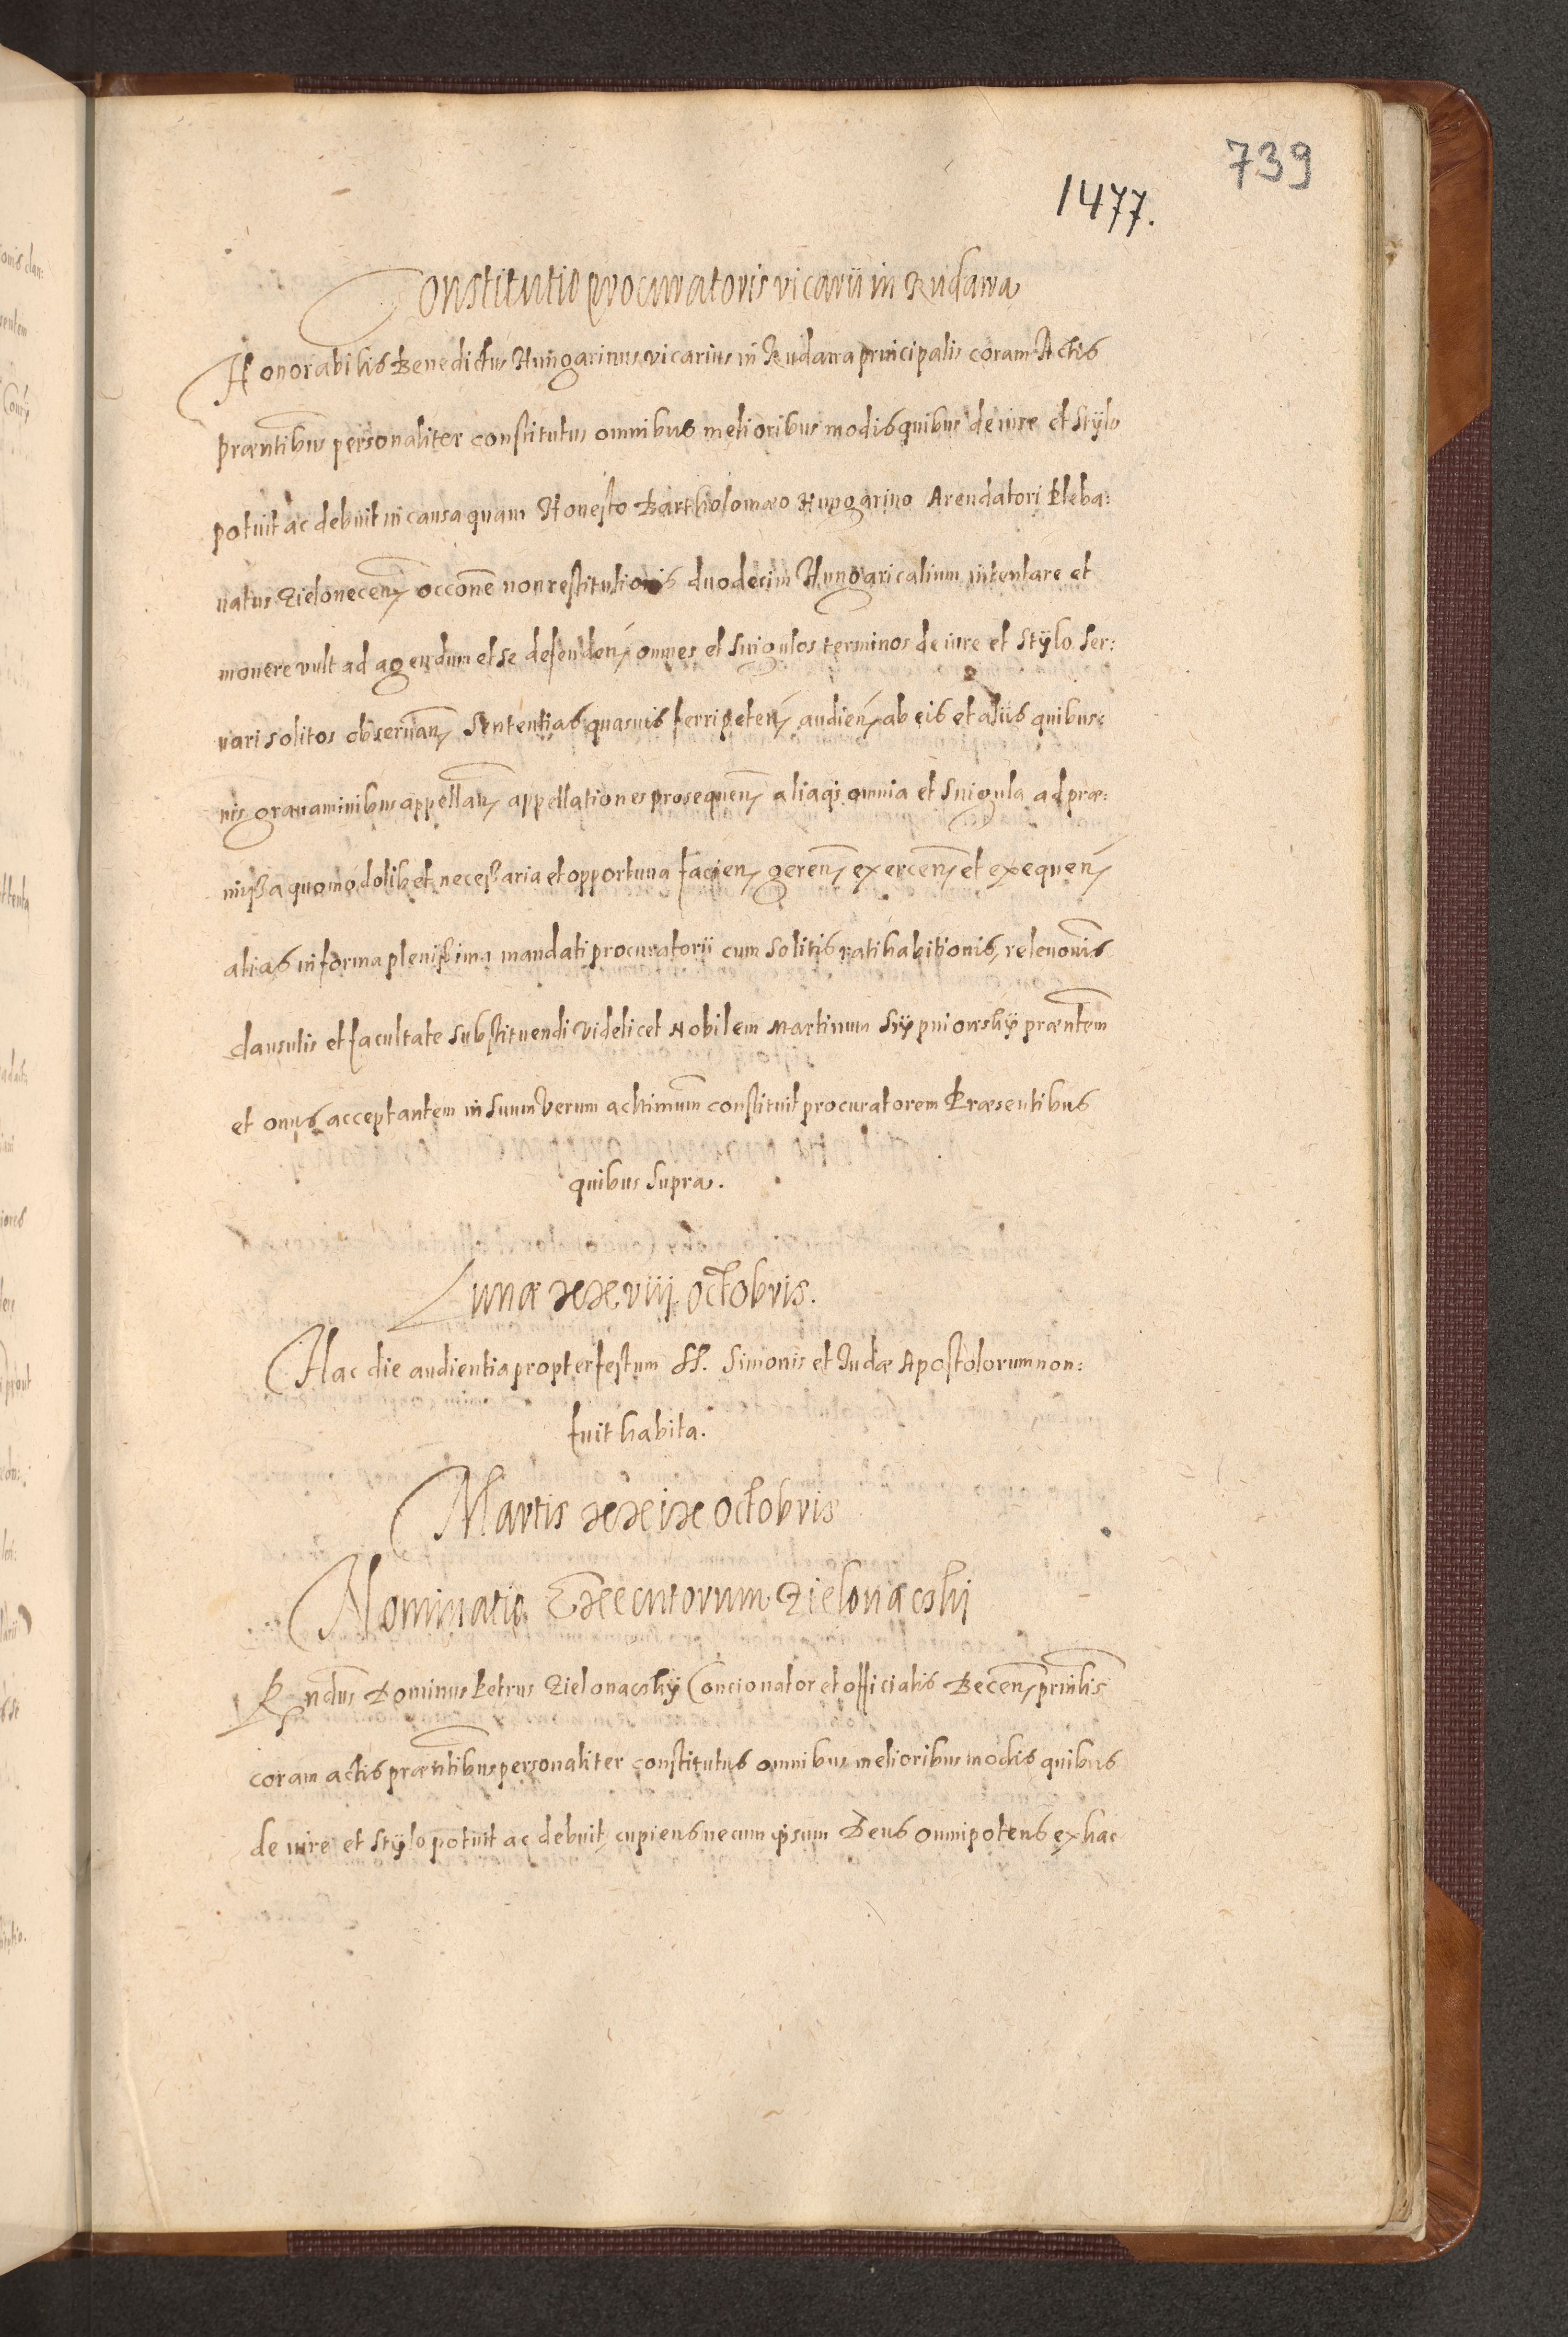 739
1477.
Constitutio procuratoris vicarii in Rudawa
Honorabilis Benedictus Hungarinus vicarius in Rudawa principalis coram Actis
praentibus personaliter constitutus omnibus melioribus modis quibus de iure et stÿlo
potuit ac debuit in causa quam Honesto Bartholomaeo Hungarino Arendatori Pleba:
natus Zielonecen occone non restitutionis duodecim Hungaricalium intentare et
mouere vult ad agendum et se defenden omnes et singulos terminos de iure et stÿlo ser:
uari solitos obseruan sententias quasuis ferri peten audien ab eis et aliis quibus:
nis grauaminibus appellan appellationes prosequen aliaq omnia et singula ad prae:
mißa quomodolibet neceßaria et opportuna facien geren exercen et exequen
alias in forma plenißima mandati procuratorii cum solitis ratihabitionis, releuonis
clausulis et facultate substituendi videlicet Nobilem Martinum Sÿpniowskÿ praentem
et onus acceptantem in suum verum ac ltimum constituit procuratorem Praesentibus
quibus supra.
Lunae xxviii octobris.
Hac die audientia propter festum SS. Simonis et Iudae Apostolorum non:
fuit habita.
Martis xxix octobris
Nominatio Executorum Zielonacski
Rndus Dominus Petrus Zielonackÿ Concionator et officialis Becen prinlis
coram actis praentibus personaliter constitutus omnibus melioribus modis quibus
de iure et stÿlo potuit ac debuit, cupiens ne cum ipsum Deus omnipotens ex hac